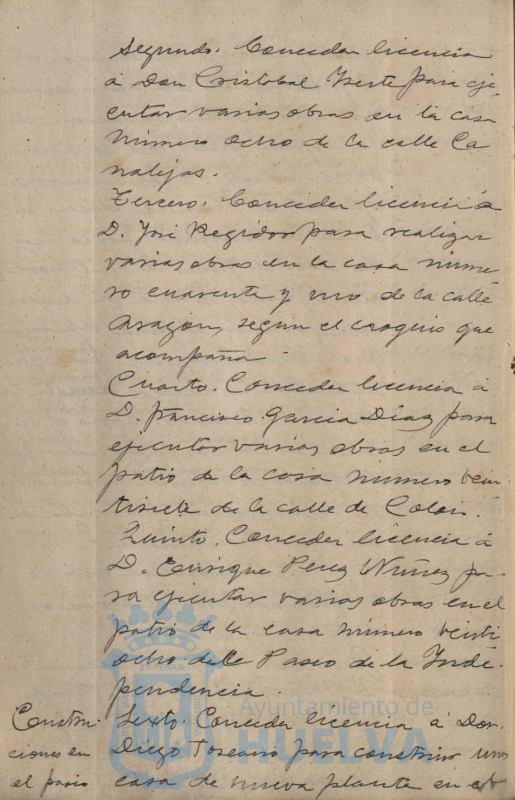 Segundo. Conceder licencia
á Don Cristobal Yserte para eje-
cutar varias obras en la casa
número ocho de la calle Ca
nalejas.
Tercero. Conceder licencia á
D. José Regidor para realizar
varias obras en la casa núme
ro cuarenta y uno de la calle
Aragon, segun el croquis que
acompaña.
Cuarto. Conceder licencia á
D. Francisco Garcia Díaz para
ejecutar varias obras en el
patio de la casa número vein
tisiete de la calle de Colón.
Quinto. Conceder licencia á
D. Enrique Perez Núñez pa-
ra ejecutar varias obras en el
patio de la casa número veinti
ocho del Paseo de la Ynde-
pendencia.
Constru- Sexto. Conceder licencia á Don
ciones en Diego Toscano para construir una
el paseo casa de nueva planta en el
Ayuntamiento de
HUELVA